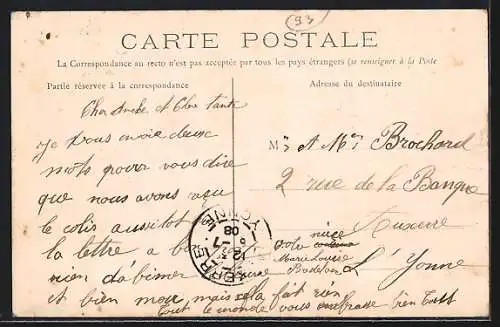 93
CARTE POSTALE
La Correspondance au recto n'est pas acceptée par tous les pays étrangers (se renseigner à la Poste
Partie réservée à la correspondance
Adresse du destinataire
Cher et Cher tante
je vous envoie deux
mots pour vous dire
que nous avons reçu
le colis aussitot
la lettre a
rien d'abimer
et bien mou, mais cela fait rien
Tout le monde vous embrasse bien
Mr et Me Brochard
2 rue de la Banque
Auxerre
Yonne
votre nièce
Marie Louise
AUXERRE
YONNE
08